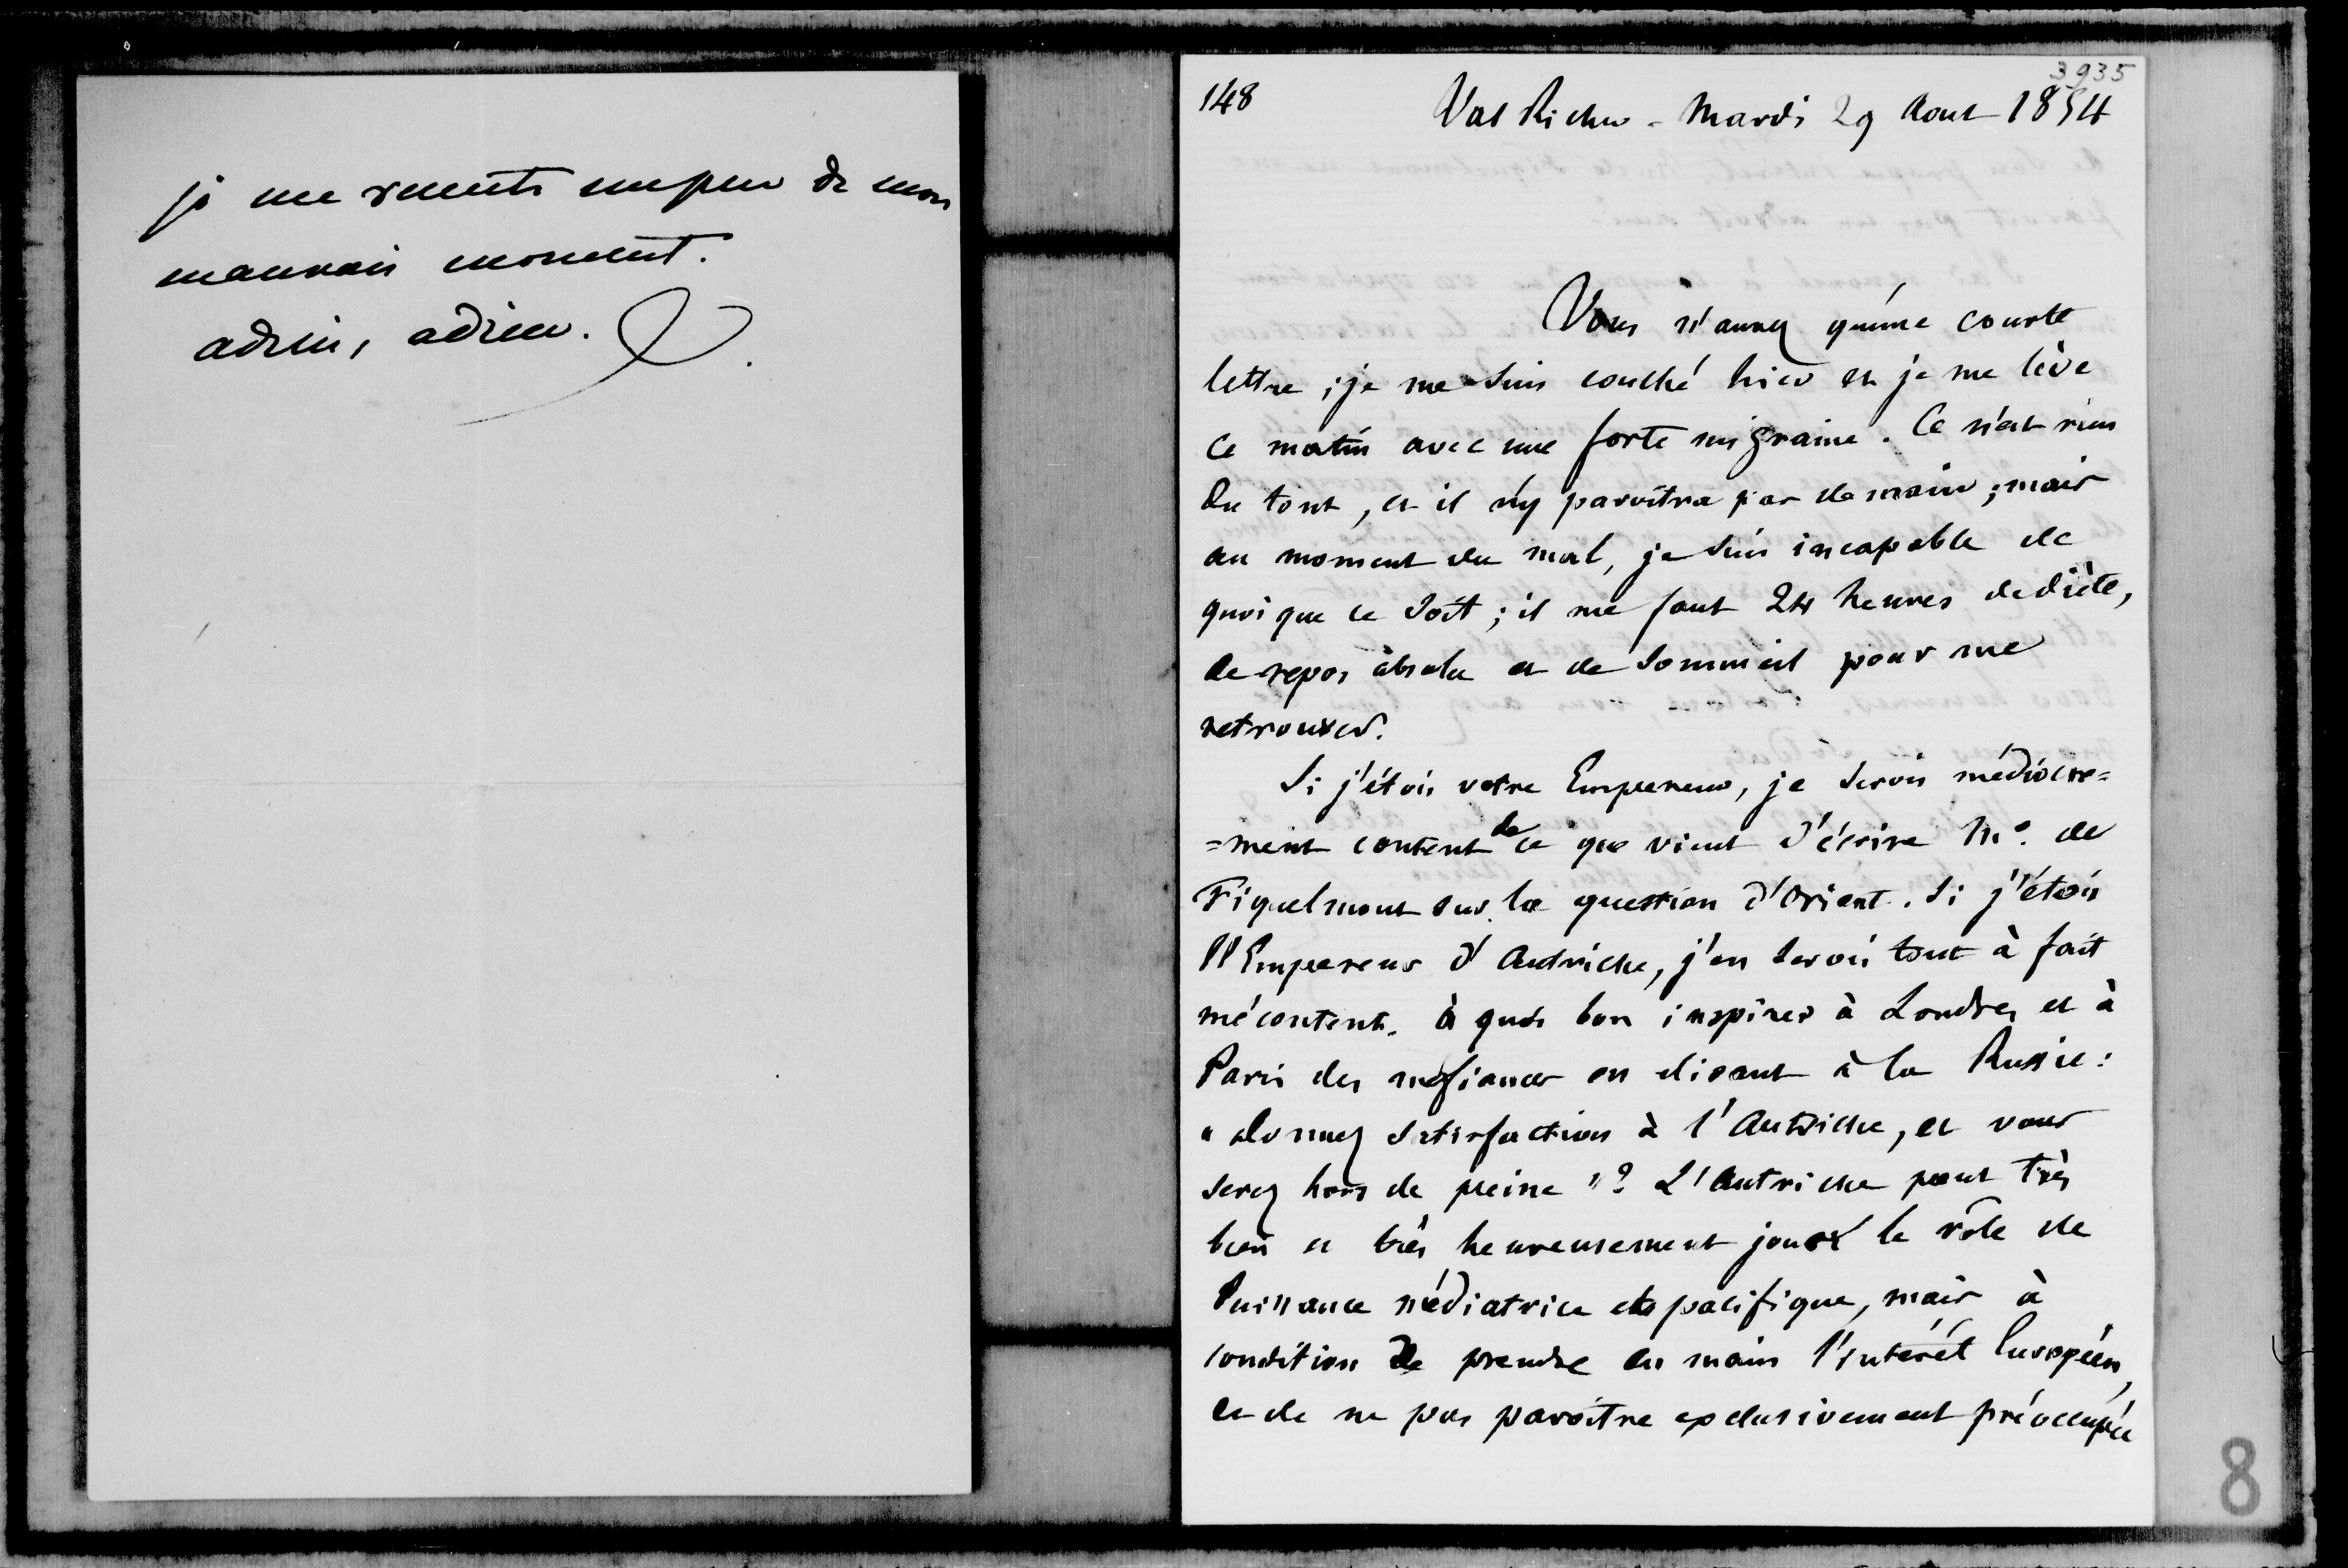 je me ressents un peu de mon
mauvais moment.
adieu, adieu.
3935
148
Val Richer - Mardi 29 Aout 1854
Vous n'aurez qu'une courte
lettre ; je me suis couché hier et je me lève
ce matin avec une forte migraine. Ce n'est rien
du tout, et il n'y paroîtra pas demain ; mais
au moment du mal, je suis incapable de
quoi que ce soit ; il me faut 24 heures de diète,
de repos absolu et de sommeil pour me
retrouver.
Si j'étois votre Empereur, je serois médiocre=
=ment content de ce que vient d'écrire Mr. de
Fiquelmont sur la question d'Orient. Si j'étois
l'Empereur d'Autriche, j'en serois tout à fait
mécontent. à quoi bon inspirer à Londres et à
Paris des méfiances en disant à la Russie :
" donnez satisfaction à l'Autriche, et vous
serez hors de peine "? L'Autriche peut très
bien et très heureusement jouer le rôle de
Puissance médiatrice et pacifique, mais à
condition de prendre en main l'intérêt Européen,
et de ne pas paroître exclusivement préoccupée
8